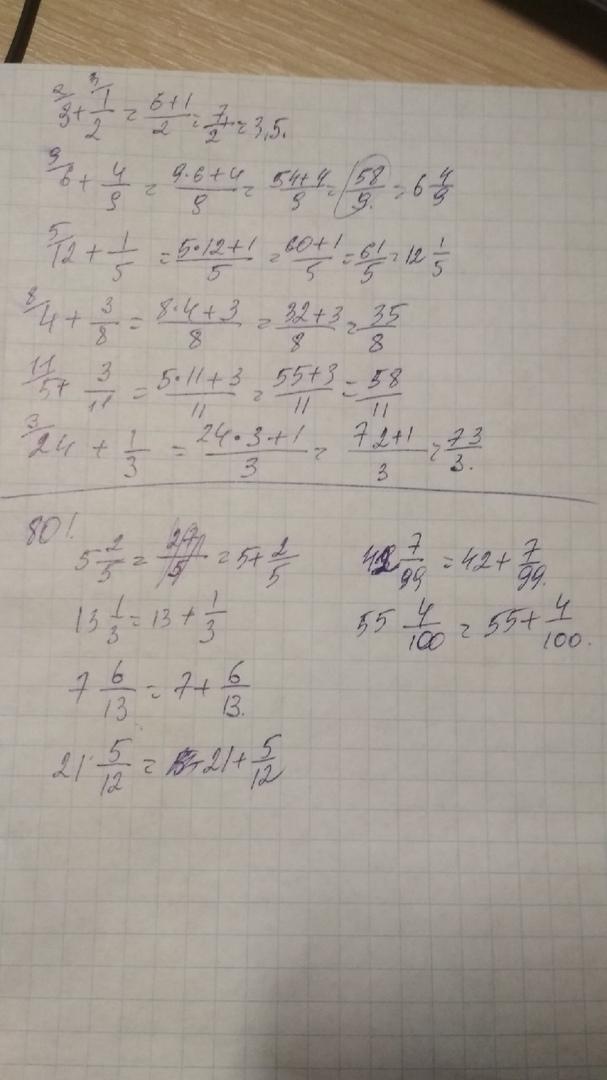 2/ 3 + 3/ 1/2 = (6+1)/2 = 7/2 = 3,5.
9/ 6 + 4/9 = (9·6+4)/9 = (54+4)/9 = 58/9. = 6 4/9
5/ 12 + 1/5 = (5·12+1)/5 = (60+1)/5 = 61/5 = 12 1/5
8/ 4 + 3/8 = (8·4+3)/8 = (32+3)/8 = 35/8
11/ 5 + 3/11 = (5·11+3)/11 = (55+3)/11 = 58/11
3/ 24 + 1/3 = (24·3+1)/3 = (72+1)/3 = 73/3.
801.
5 2/5 = 27/5 = 5 + 2/5
13 1/3 = 13 + 1/3
7 6/13 = 7 + 6/13.
21 5/12 = 21 + 5/12
42 7/99 = 42 + 7/99.
55 4/100 = 55 + 4/100.